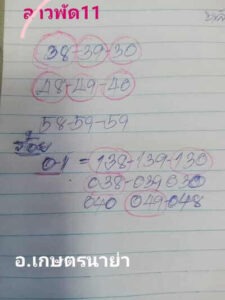 ลาวพัด11
38-39-30
48-49-40
58-59-59
ร้อย
01 = 138-139-130
038-039 030
040 049-048
อ.เกษตรนาย่า